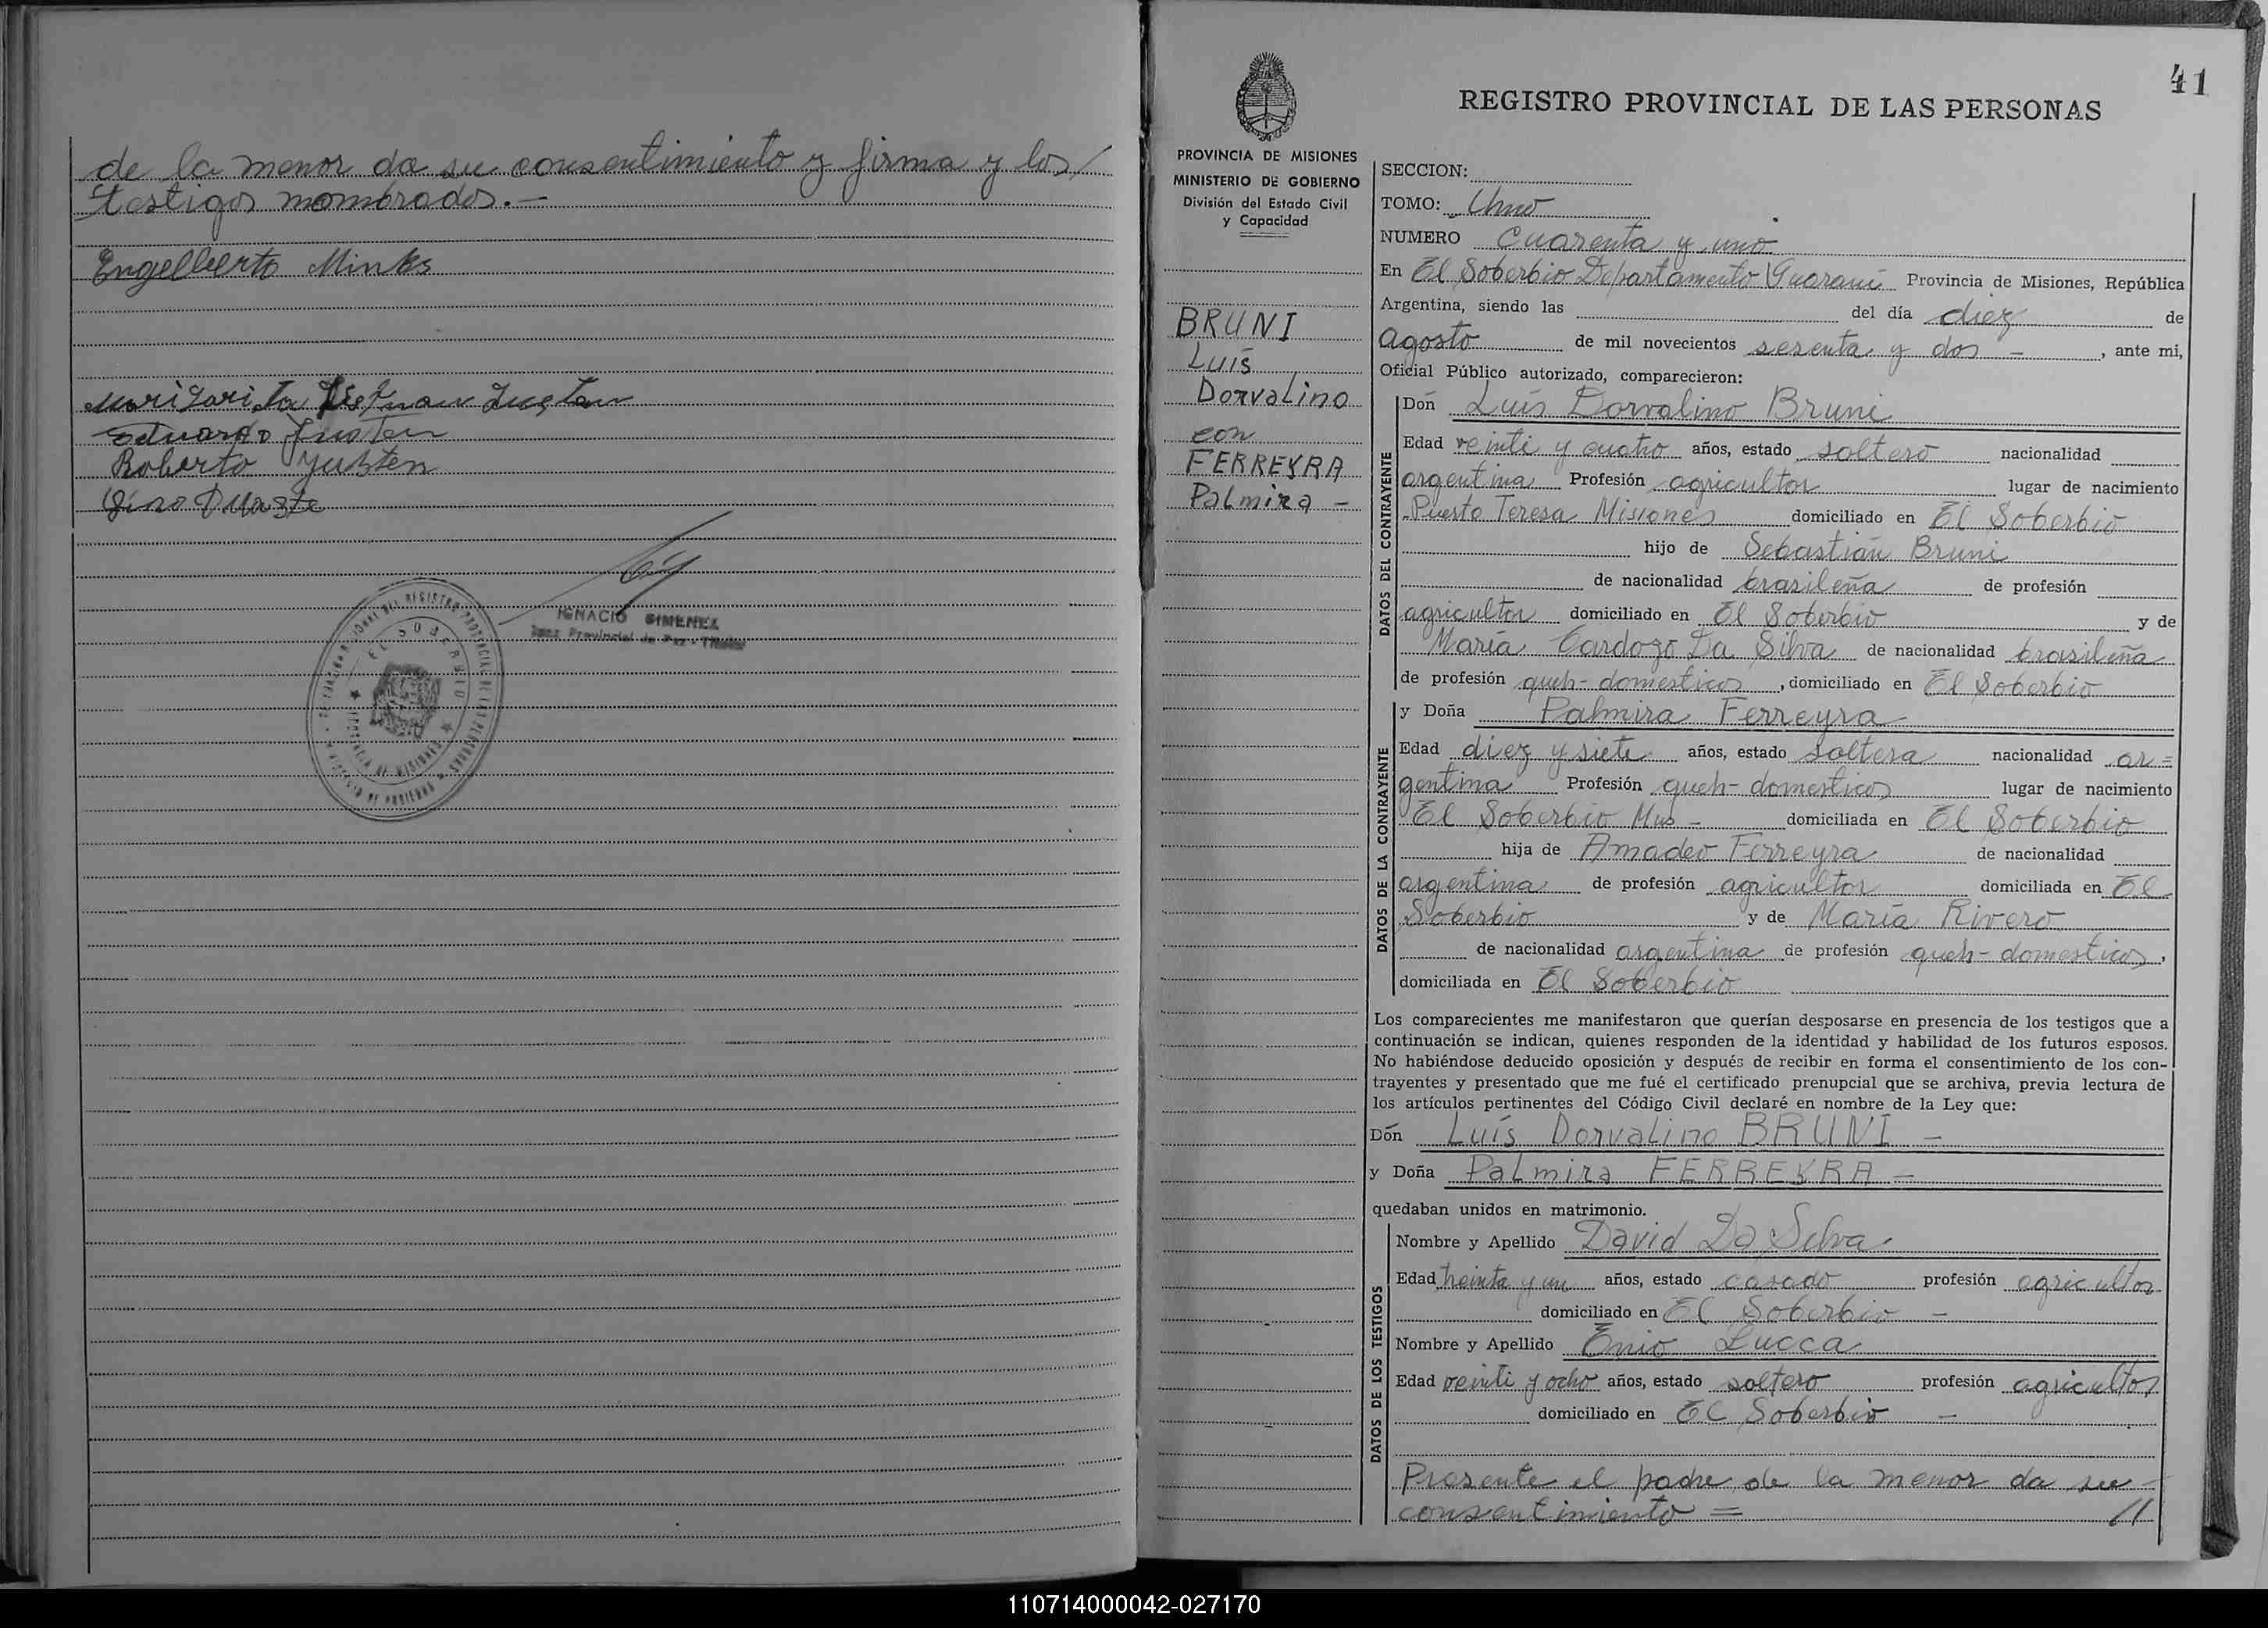 de la menor da su consentimiento y firma y los/
testigos nombrados.—
Engelberto Minks
Eduardo Justen
Roberto Yusten
IGNACIO GIMENEZ
EL SOBERBIO
41
REGISTRO PROVINCIAL DE LAS PERSONAS
PROVINCIA DE MISIONES
MINISTERIO DE GOBIERNO
División del Estado Civil
y Capacidad
BRUNI
Luís
Dorvalino
con
FERREYRA
Palmira —
SECCION:
TOMO: Uno
NUMERO cuarenta y uno
En El Soberbio Departamento Guaraní Provincia de Misiones, República
Argentina, siendo las del día diez de
agosto de mil novecientos sesenta y dos — , ante mi,
Oficial Público autorizado, comparecieron:
DATOS DEL CONTRAYENTE
Don Luís Dorvalino Bruni
Edad veinti y cuatro años, estado soltero nacionalidad
argentina Profesión agricultor lugar de nacimiento
Puerto Teresa Misiones domiciliado en El Soberbio
hijo de Sebastián Bruni
de nacionalidad brasileña de profesión
agricultor domiciliado en El Soberbio y de
María Cardozo Da Silva de nacionalidad brasileña
de profesión queh-domesticos , domiciliado en El Soberbio
DATOS DE LA CONTRAYENTE
y Doña Palmira Ferreyra—
Edad diez y siete años, estado soltera nacionalidad ar=
gentina Profesión queh-domesticos lugar de nacimiento
El Soberbio Mns — domiciliada en El Soberbio
hija de Amadeo Ferreyra de nacionalidad
argentina de profesión agricultor domiciliada en El
Soberbio y de María Rivero
de nacionalidad argentina de profesión queh-domesticos,
domiciliada en El Soberbio
Los comparecientes me manifestaron que querían desposarse en presencia de los testigos que a
continuación se indican, quienes responden de la identidad y habilidad de los futuros esposos.
No habiéndose deducido oposición y después de recibir en forma el consentimiento de los con-
trayentes y presentado que me fué el certificado prenupcial que se archiva, previa lectura de
los artículos pertinentes del Código Civil declaré en nombre de la Ley que:
Dón Luís Dorvalino BRUNI —
y Doña Palmira FERREYRA —
quedaban unidos en matrimonio.
DATOS DE LOS TESTIGOS
Nombre y Apellido David Da Silva
Edad treinta y un años, estado casado profesión agricultor
domiciliado en El Soberbio —
Nombre y Apellido Enio Lucca
Edad veinti y ocho años, estado soltero profesión agricultor
domiciliado en El Soberbio —
Presente el padre de la menor da su
consentimiento = //
110714000042-027170